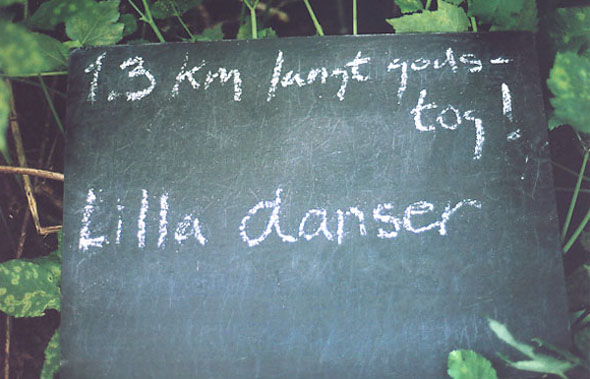 13 km langt gods-
tog!
Lilla danser